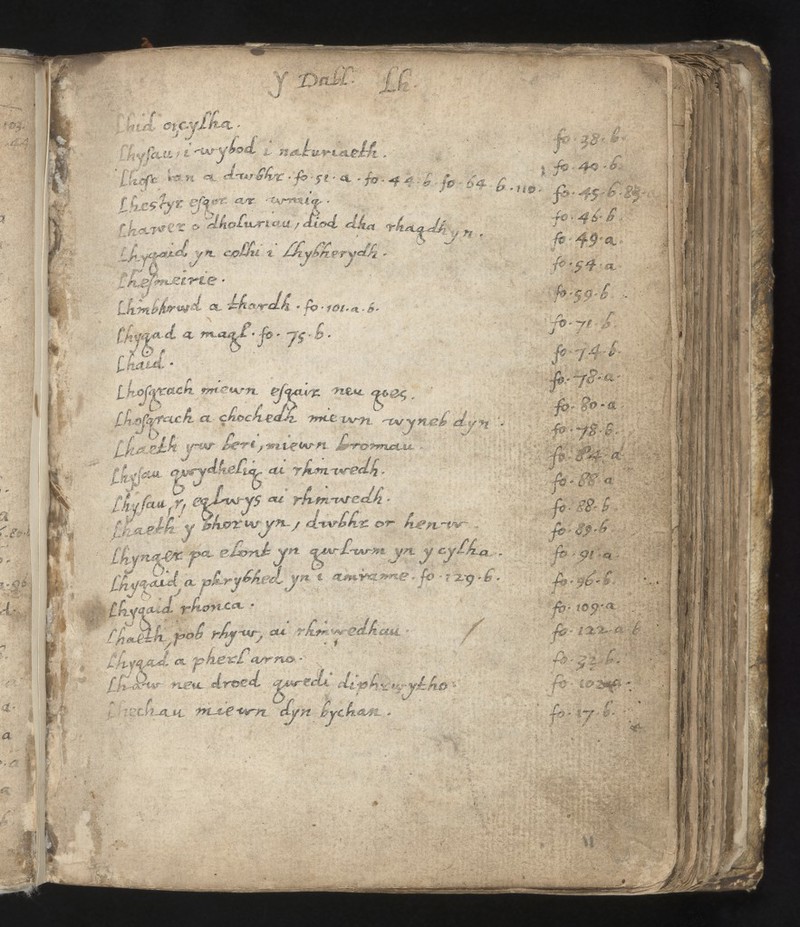 Y Dall. Lh.
Lhid or cylha. fo. 38. b.
Lhysau, i wybod i naturiaeth. fo. 40. b.
Lhosc tan a dwbhr. fo. 51. a. fo. 44. b. fo. 64. b. 110. fo. 45. b. 83.
Lhestyr esgor ar wraig. fo. 46. b.
Lhawer o dholuriau, diod dha rhagdhyn. fo. 49. a.
Lhygaid yn colhi i Lhybherydh. fo. 54. a
Lhesmeirie. fo. 59. b.
Lhimbhrwd a thardh. fo. 101. a. b. fo. 71. b.
Lhygad a magl. fo. 75. b. fo. 74. b.
Lhaid. fo. 78. a.
Lhosgrach miewn esgair neu goes. fo. 80. a
Lhosgrach a chochedh miewn wyneb dyn. fo. 78. b.
Lhaeth yw beri, miewn bronnau. fo. 84. a
Lhysau gwydhelig ai rhinwedh. fo. 88. a
Lhysau, r, eglwys ai rhinwedh. fo. 88. b.
Lhaeth y bhorwyn, dwbhr or henw. fo. 89. b.
Lhynger pa elont yn gwlwm yn y cylha. fo. 91. a.
Lhygaid a phrybhed yn i amranne. fo. 129. b. fo. 96. b.
Lhygaid rhonca. fo. 109. a
Lhaeth, pob rhyw, ai rhinwedhau. fo. 122. a. b
Lhygad a pherl arno. fo. 32. b.
Lhaw neu droed gwedi diphrwytho. fo. 102
Lhechau miewn dyn bychan. fo. 17. b.